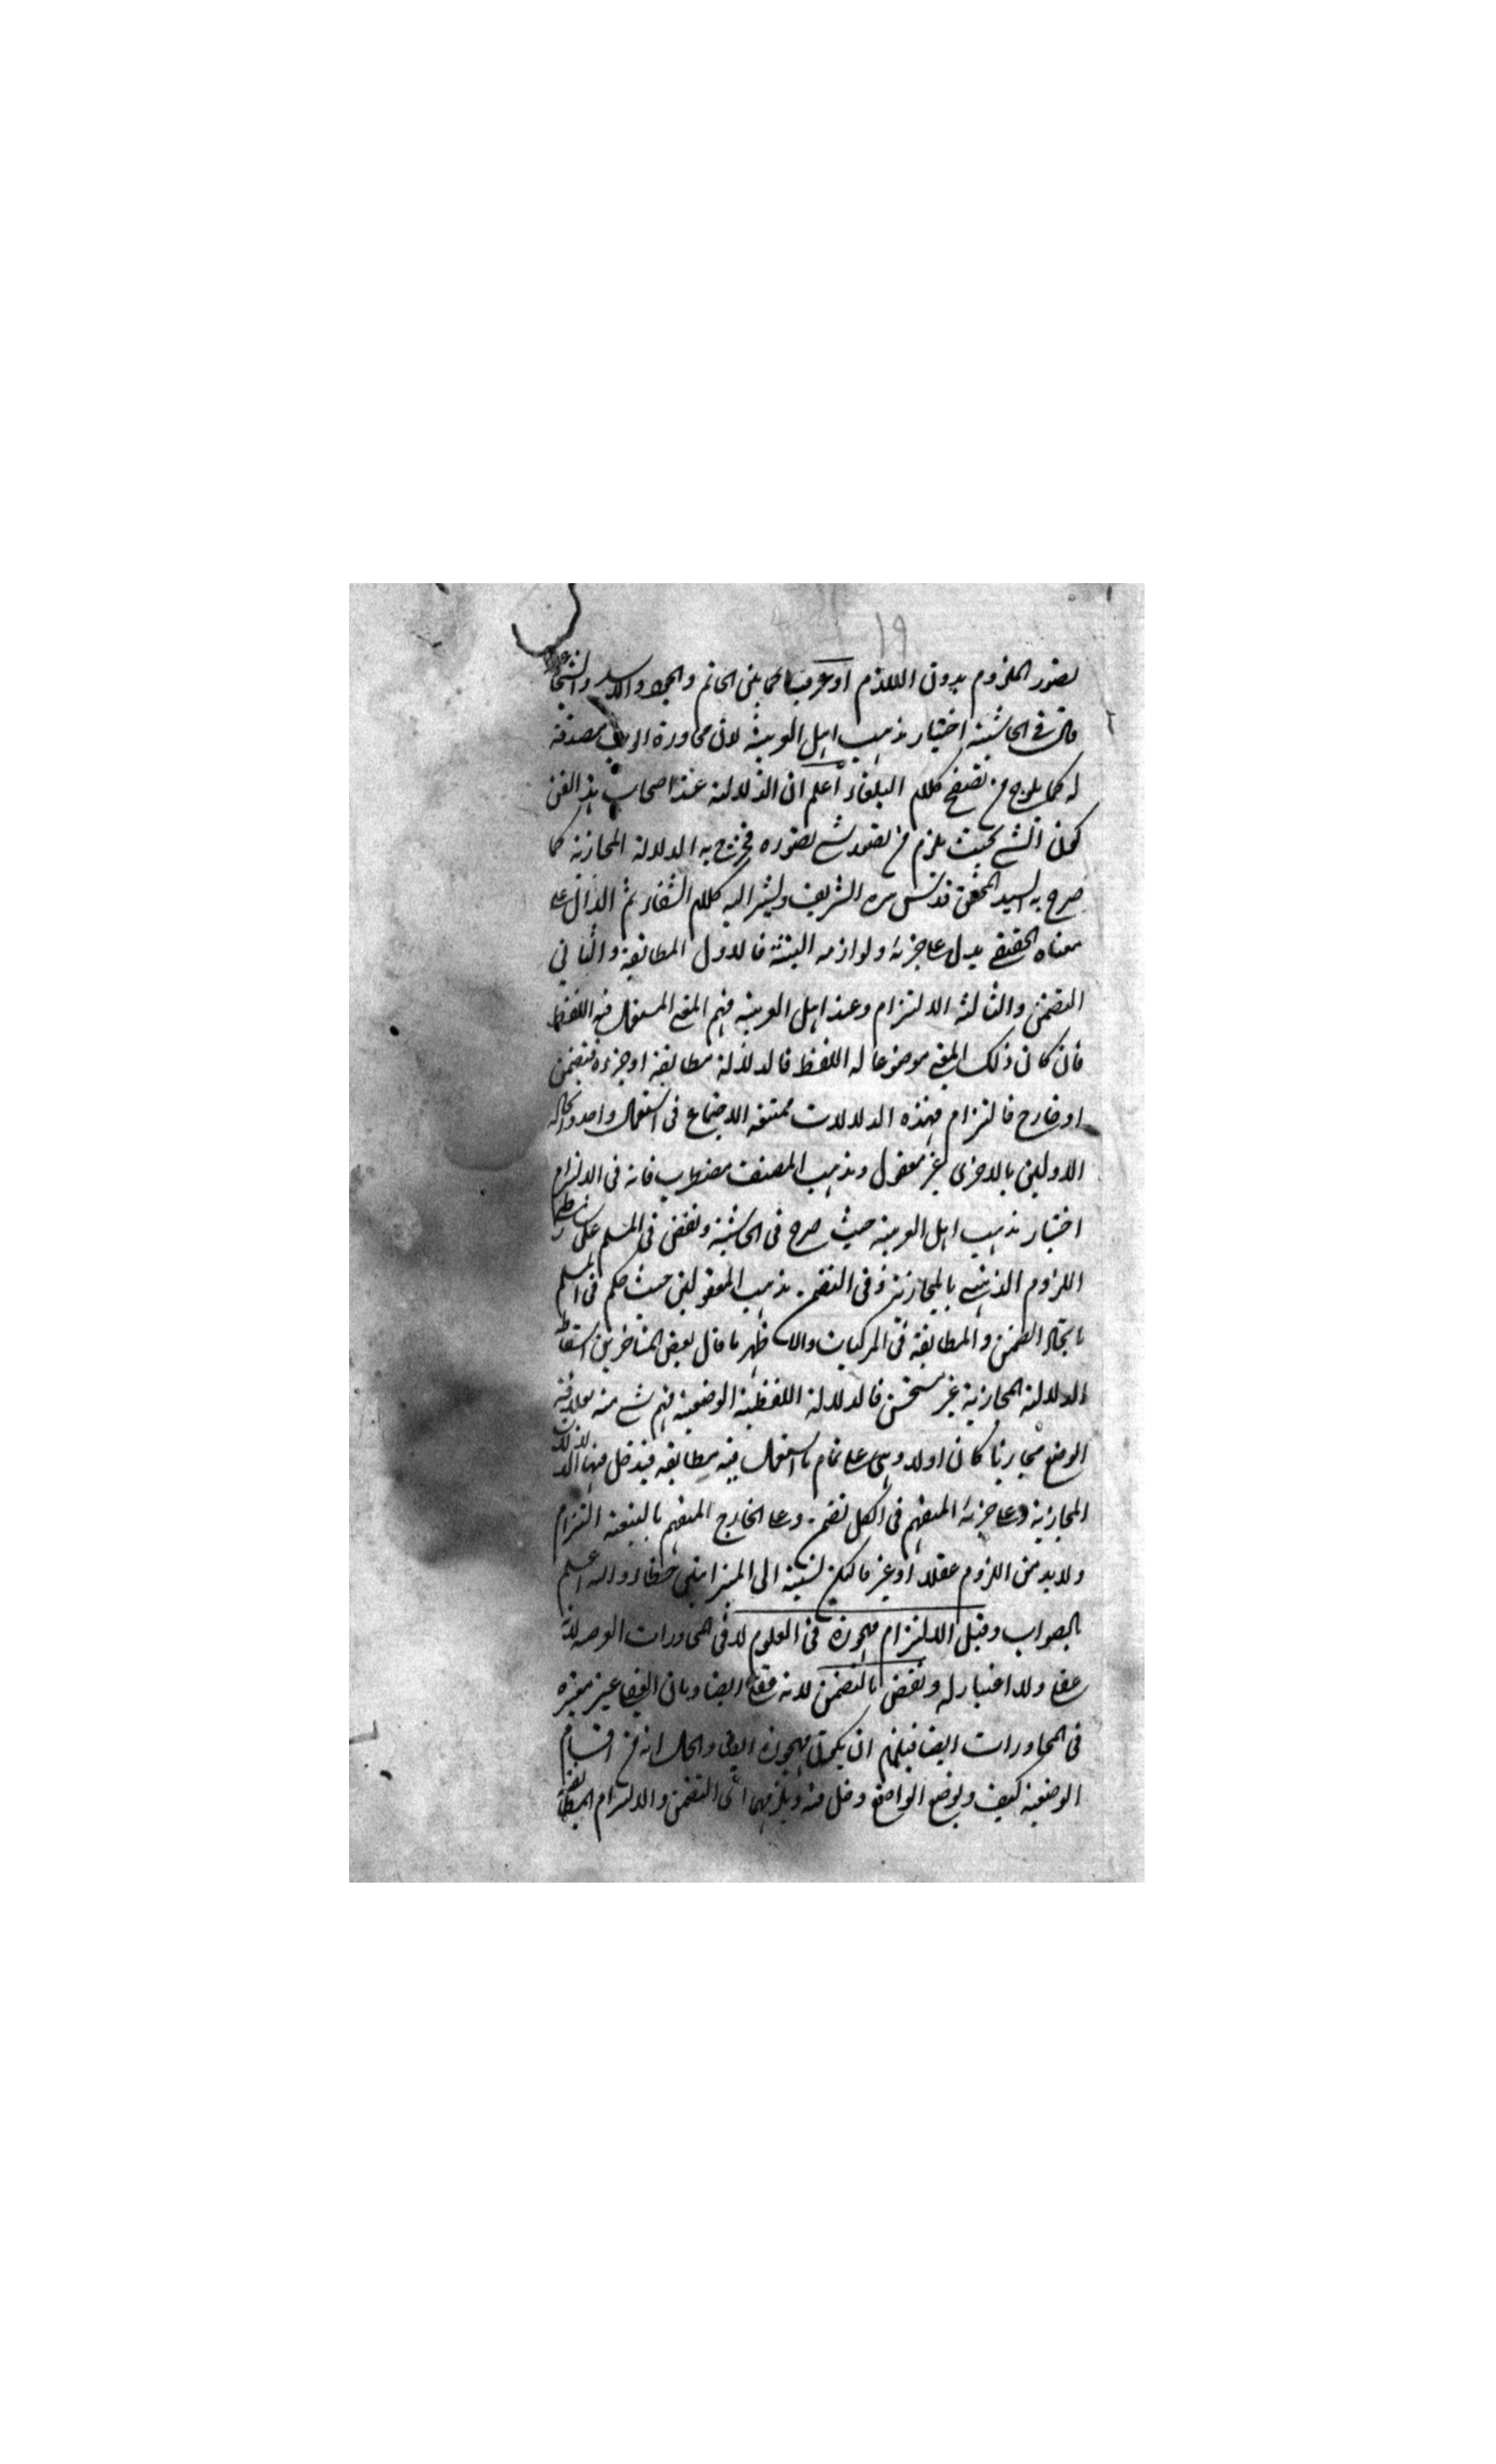 ١٩
تصور الملزوم بدون اللازم او عرفية كما بين الحاتم والجود والاسد والشجاعة
قال في الحاشية اختيار مذهب اهل العربية لان محاورة مصدقة
له كما يلوح من تصفح كلام البلغاء اعلم ان الدلالة عند اصحاب هذا الفن
كون الشئ بحيث يلزم من تصوره شئ تصوره فخرج به الدلالة المجازية كما
صرح به السيد المحقق قدس سره الشريف ويشير اليه كلام الشفاء ثم الدال على
معناه الحقيقي يدل على جزئه ولوازمه البينة فالاول المطابقة والثاني
التضمن والثالثة الالتزام وعند اهل العربية فهم المعنى المستعمل فيه اللفظ
فان كان ذلك المعنى موضوعا له اللفظ فالدلالة مطابقة او جزءه فتضمن
او خارج فالتزام فهذه الدلالات ممتنعة الاجتماع في استعمال واحد واتحاد
الاولين بالاخرى غير معقول ومذهب المصنف مضطرب فانه في الالتزام
اختيار مذهب اهل العربية حيث صرح في الحاشية ونقض في المسلم على شارط
اللزوم الذهني بالمجازية وفي التضمن مذهب المعقولين حيث حكم في المسلم
باتحاد التضمن والمطابقة في المركبات والاظهر ما قال بعض المتاخرين اسقاط
الدلالة المجازية غير مستحسن فالدلالة اللفظية الوضعية فهم شئ منه بعلاقة
الوضع مجازيا كان اولا وهي على تمام ما استعمل فيه مطابقة فيدخل فيها الدلالات
المجازية وعلى جزئه المنفهم في الكل تضمن وعلى الخارج المنفهم بالتبعية التزام
ولابد من اللزوم عقلا او غير بينة الى خطاء والله اعلم
بالصواب وقيل الالتزام مهجورة في العلوم لا في المحاورات لانه
عقلي ولا اعتبار له ونقض بالتضمن لانه عقلي ايضا وبان غير معتبرة
في المحاورات ايضا فيلزم ان يكون مهجورة والحل انه من اقسام
الوضعية كيف ولوضع الواضع دخل فيه ويلزمهما اي التضمن والالتزام المطابقة